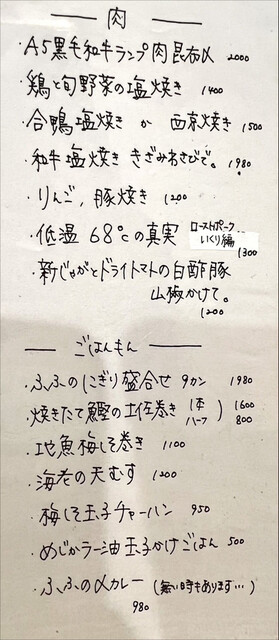 肉
・A5黒毛和牛ランプ肉昆布〆 2000
・鶏と旬野菜の塩焼き 1400
・合鴨塩焼き か 西京焼き 1500
・和牛塩焼き きざみわさびで。 1980
・りんご豚焼き 1200
・低温68℃の真実 ローストポーク…
いくり編
1300
・新じゃがとドライトマトの白酢豚
山椒かけて。
1200
ごはんもん
・ふふのにぎり盛合せ 9カン 1980
・焼きたて鰹の土佐巻き 1本 ) 1600
ハーフ 800
・地魚梅しそ巻き 1100
・海老の天むす 1200
・梅しそ玉子チャーハン 950
・めじかラー油玉子かけごはん 500
・ふふのαカレー (無い時もあります…)
980